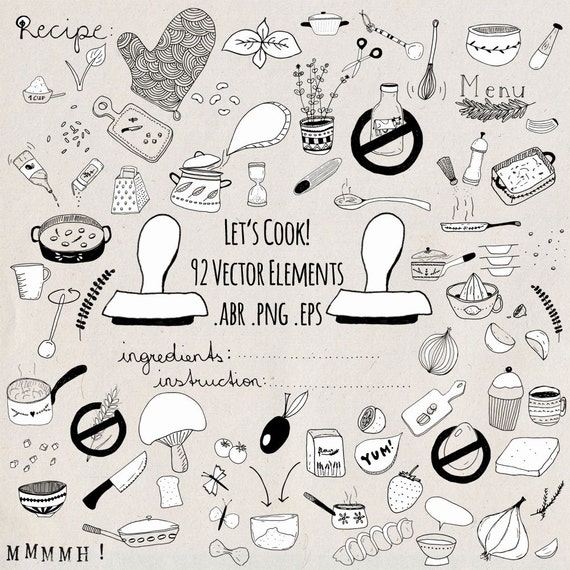 Recipe:
1 CUP
Menu
LET'S COOK!
92 VECTOR ELEMENTS
.ABR .PNG .EPS
ingredients:
instruction:
flour
YUM!
MMMMH!